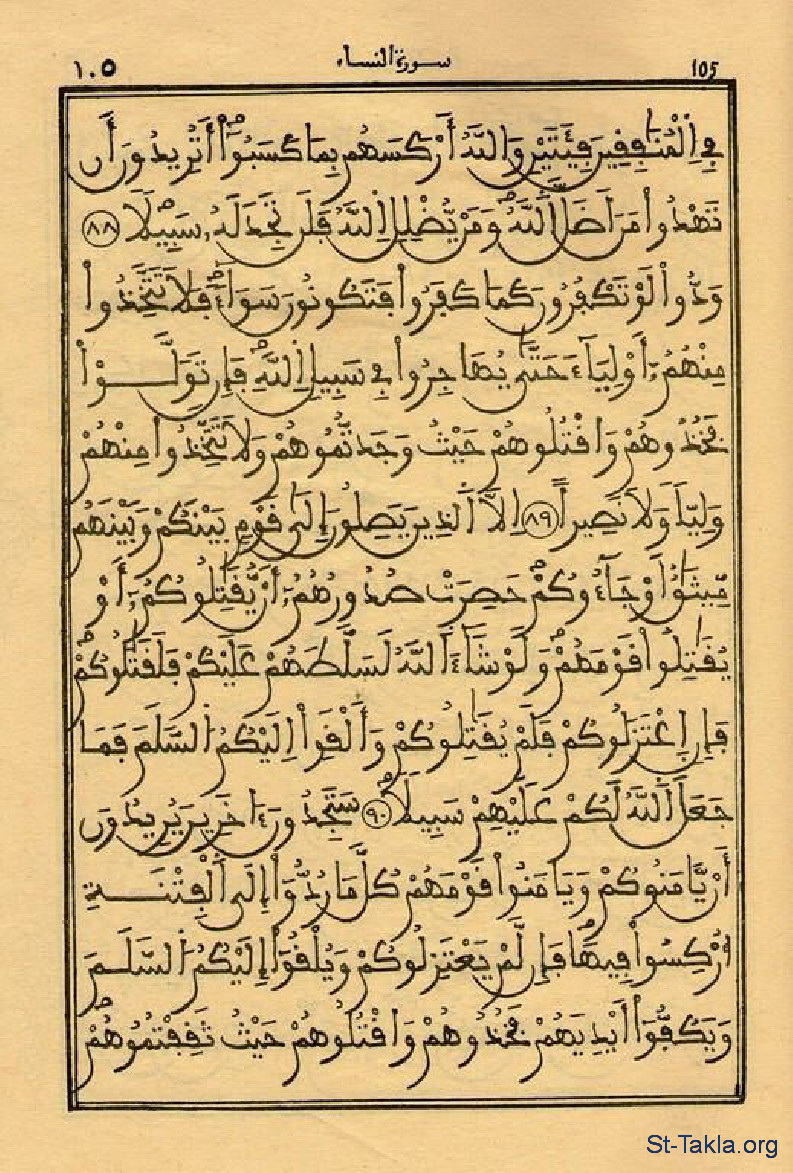 105 سورة النساء ١٠٥
فِي اِ۬لْمُنَٰفِقِينَ فِئَتَيْنِ وَاللَّهُ أَرْكَسَهُم بِمَا كَسَبُوٓا۟ أَتُرِيدُونَ أَن
تَهْدُوا۟ مَنَ اَضَلَّ اَ۬للَّهُ وَمَنْ يُّضْلِلِ اِ۬للَّهُ فَلَن تَجِدَ لَهُۥ سَبِيلًا ٨٨
وَدُّوا۟ لَوْ تَكْفُرُونَ كَمَا كَفَرُوا۟ فَتَكُونُونَ سَوَآءً فَلَا تَتَّخِذُوا۟
مِنْهُمُۥٓ أَوْلِيَآءَ حَتَّىٰ يُهَاجِرُوا۟ فِي سَبِيلِ اِ۬للَّهِ فَإِن تَوَلَّــوْا۟
فَخُذُوهُمْ وَاقْتُلُوهُمْ حَيْثُ وَجَدتُّمُوهُمْ وَلَا تَتَّخِذُوا۟ مِنْهُمْ
وَلِيًّا وَلَا نَصِيراً ٨٩ اِلَّا اَ۬لذِينَ يَصِلُونَ إِلَىٰ قَوْمٍ بَيْنَكُمْ وَبَيْنَهُم
مِّيثَٰقٌ اَوْ جَآءُوكُمْ حَصِرَتْ صُدُورُهُمُۥٓ أَنْ يُّقَٰتِلُوكُمُۥٓ أَوْ
يُقَٰتِلُوا۟ قَوْمَهُمْ وَلَوْ شَآءَ اَ۬للَّهُ لَسَلَّطَهُمْ عَلَيْكُمْ فَلَقَٰتَلُوكُمْ
فَإِنِ اِ۪عْتَزَلُوكُمْ فَلَمْ يُقَٰتِلُوكُمْ وَأَلْقَوِا۟ اِلَيْكُمُ اُ۬لسَّلَمَ فَمَا
جَعَلَ اَ۬للَّهُ لَكُمْ عَلَيْهِمْ سَبِيلًا ٩٠ سَتَجِدُونَ ءَاخَرِينَ يُرِيدُونَ
أَنْ يَّامَنُوكُمْ وَيَامَنُوا۟ قَوْمَهُمْ كُلَّ مَا رُدُّوٓا۟ إِلَى اَ۬لْفِتْنَــةِ
أُرْكِسُوا۟ فِيهَا فَإِن لَّمْ يَعْتَزِلُوكُمْ وَيُلْقُوٓا۟ إِلَيْكُمُ اُ۬لسَّلَــمَ
وَيَكُفُّوٓا۟ أَيْدِيَهُمْ فَخُذُوهُمْ وَاقْتُلُوهُمْ حَيْثُ ثَقِفْتُمُوهُمْ
St-Takla.org